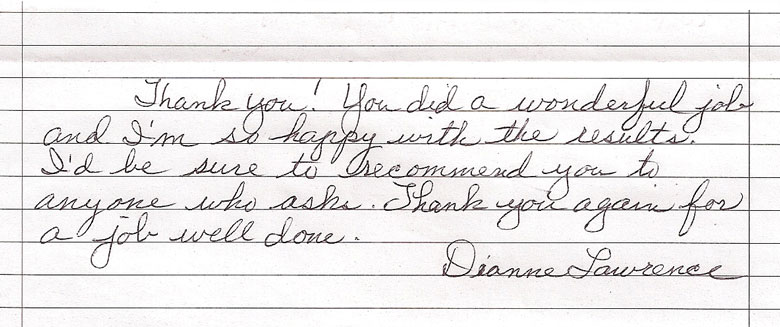 Thank you! You did a wonderful job
and I'm so happy with the results.
I'd be sure to recommend you to
anyone who asks. Thank you again for
a job well done.
Dianne Lawrence